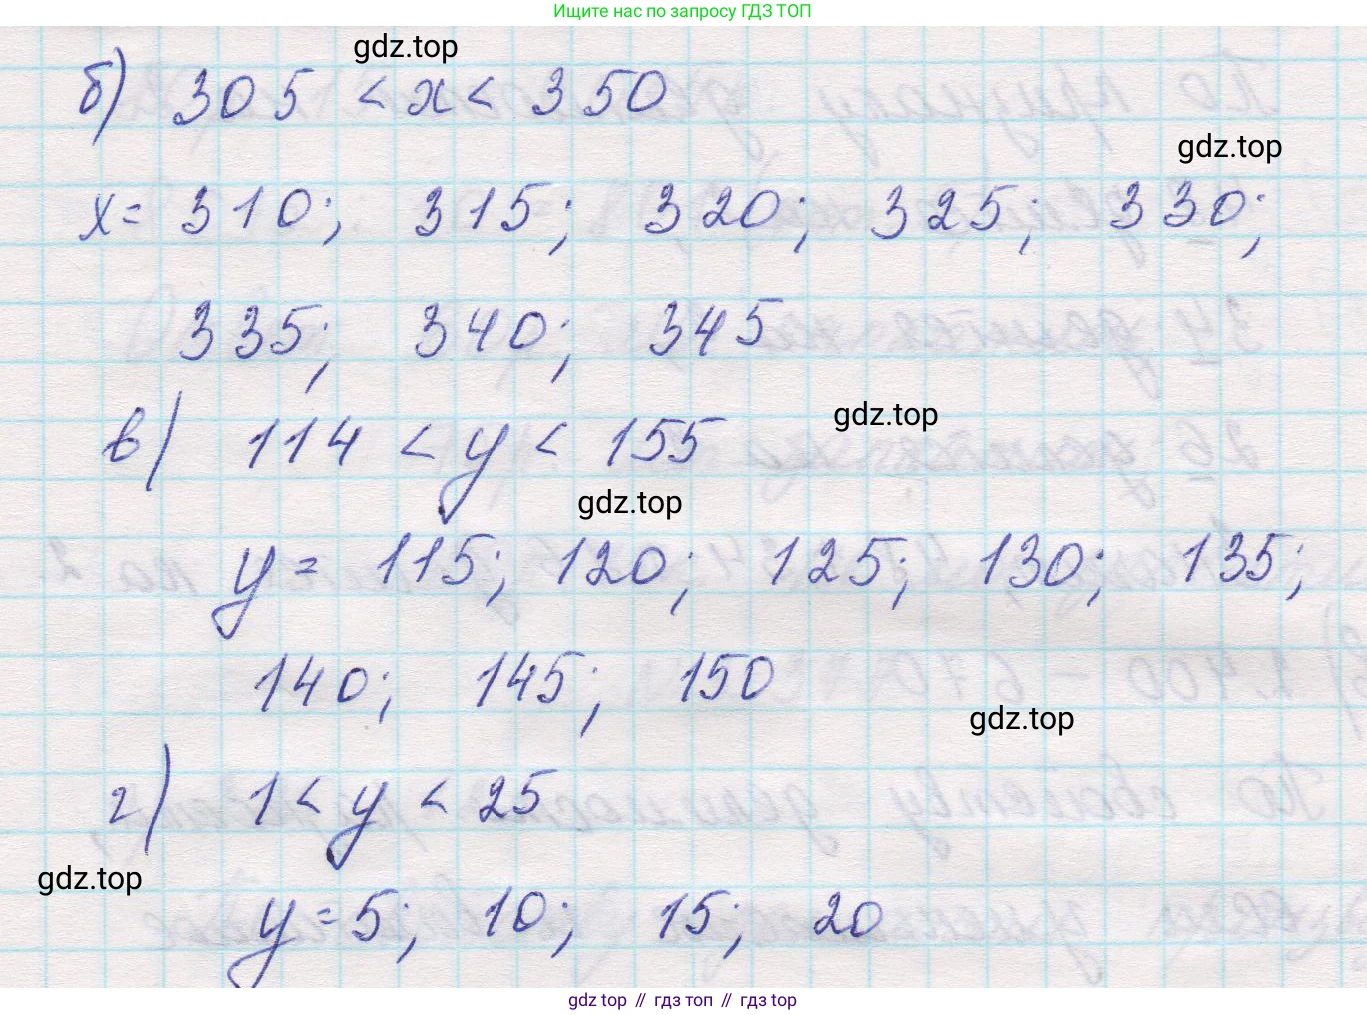 Ищите нас по запросу ГДЗ ТОП
gdz.top
б) 305 < x < 350
gdz.top
x = 310; 315; 320; 325; 330;
335; 340; 345
gdz.top
в) 114 < y < 155
gdz.top
y = 115; 120; 125; 130; 135;
140; 145; 150
gdz.top
г) 1 < y < 25
gdz.top
y = 5; 10; 15; 20
gdz top // гдз топ // гдз top